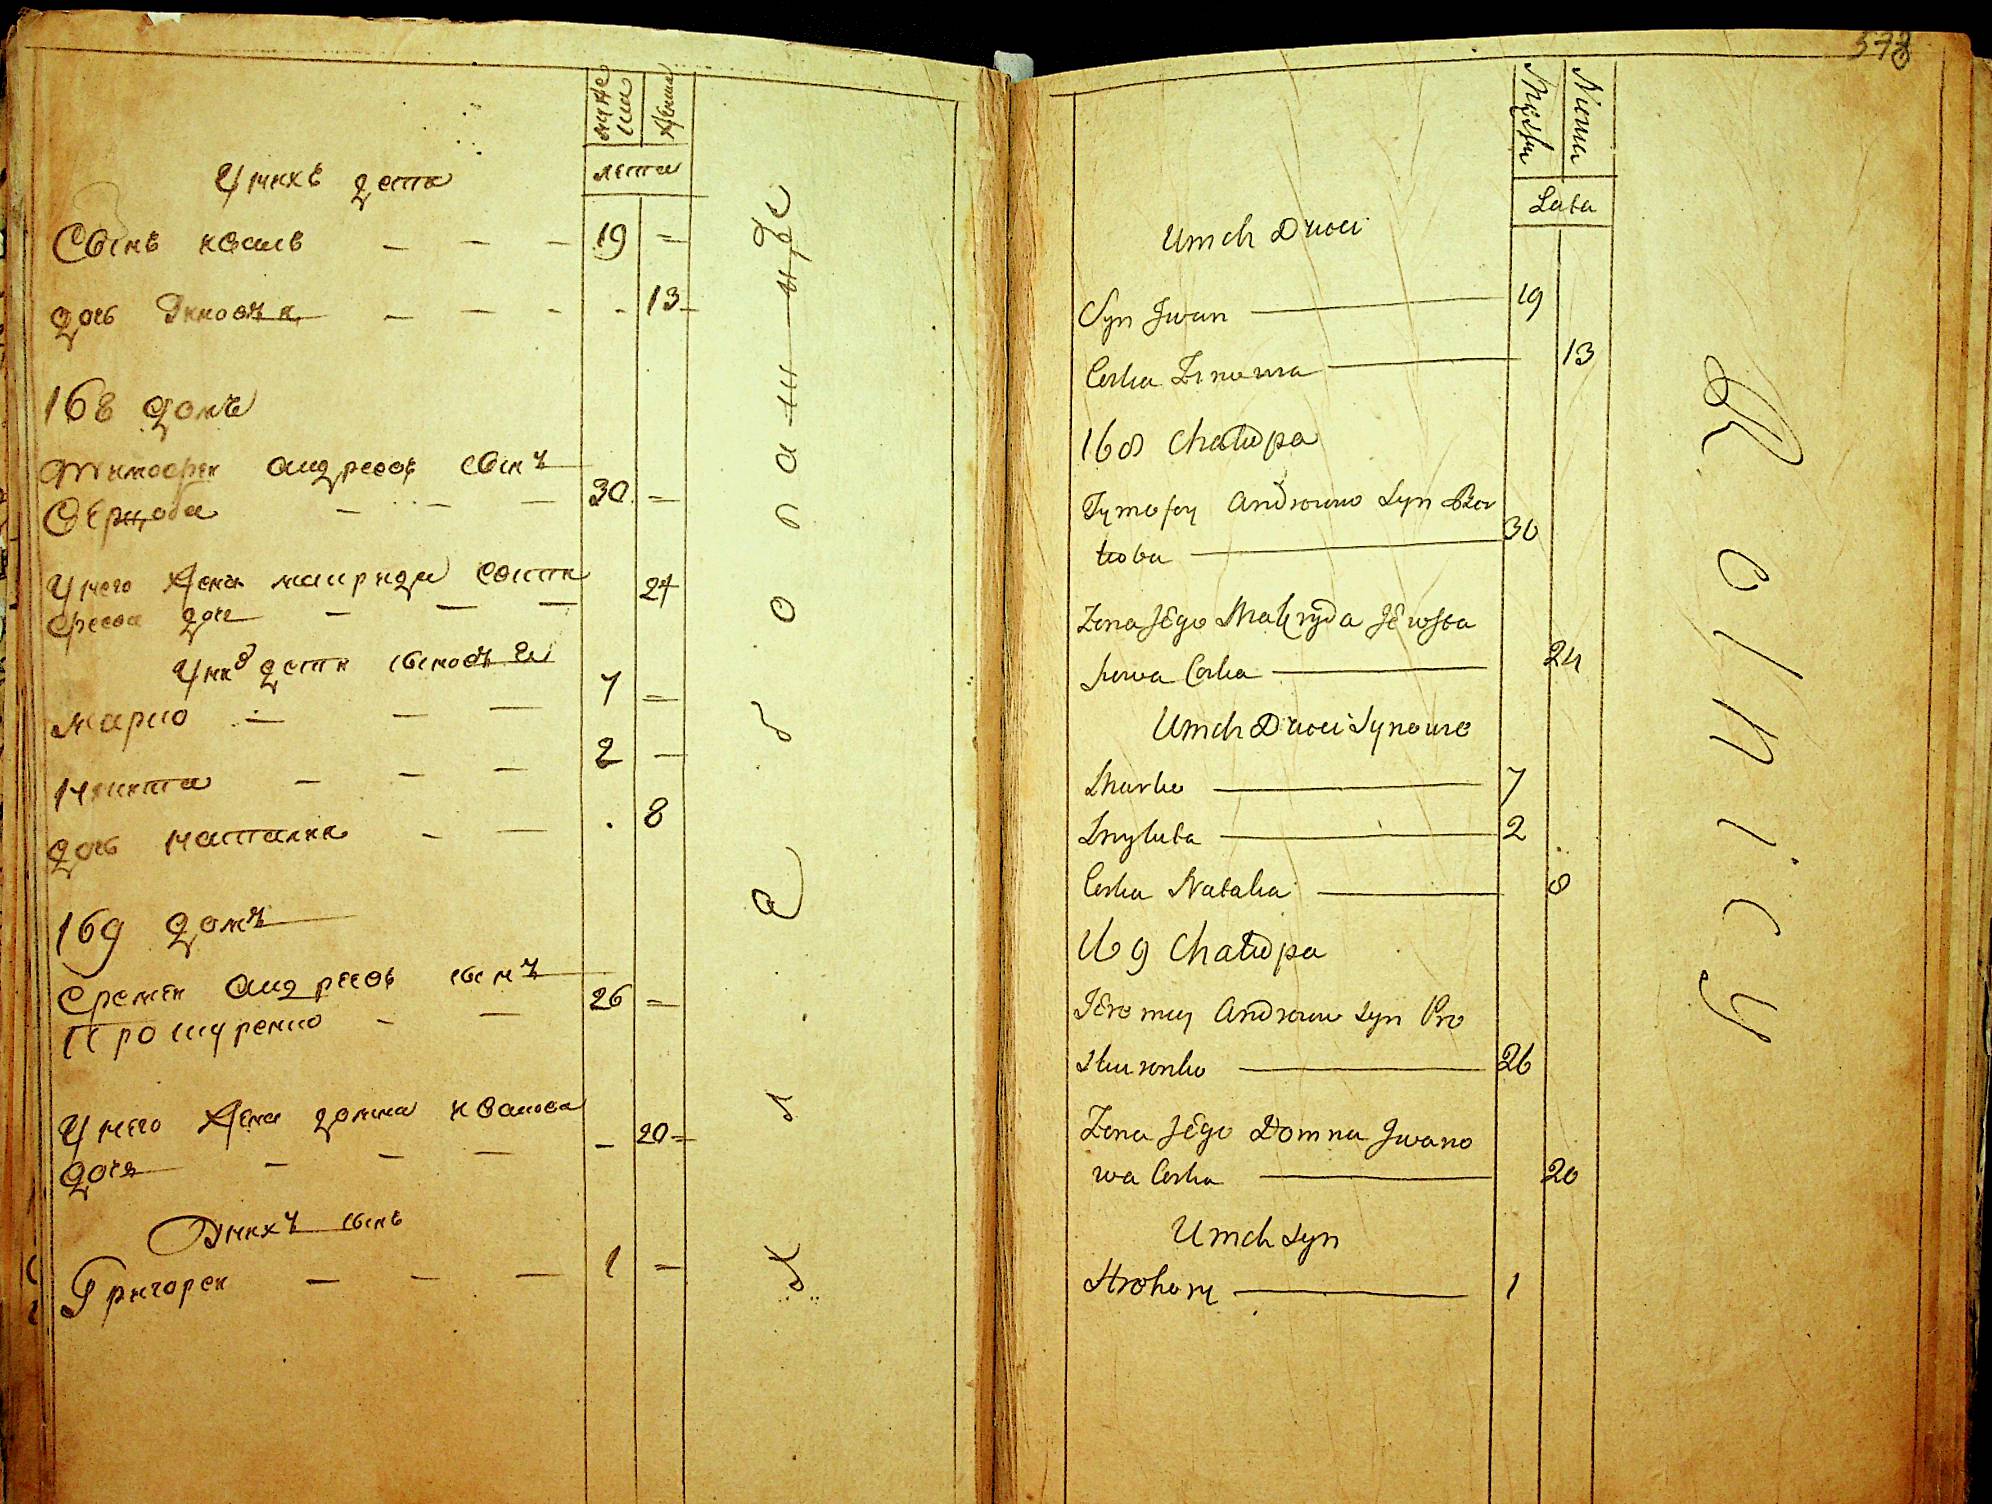 мужеска
женска
лета
У нихъ дети
Сынъ иванъ 19
дочь Зиновия 13
168 домъ
Тимофеи андреевъ сынъ
30
У него жена макрида евста
феева дочь 24
У них дети сыновья
Марко 7
Никита 2
дочь наталия 8
169 домъ
Еремеи андреевъ сынъ
Прошуренко 26
У него жена домна иванова
дочь 20
У нихъ сынъ
Григореи 1
Хлебопашцы
378
Męska
Niewia
Lata
U nich Dzieci
Syn Jwan 19
Corka Zinowia 13
168 Chałupa
Tymofey Androwno Syn
30
Zona Jego Makryda Jewsta
fiewa Corka 24
U nich Dzieci Synowie
Marko 7
Mykita 2
Corka Natalia 8
169 Chałupa
Jeremey Androwno Syn Pro
szurenko 26
Zona Jego Domna Jwano
wa Corka 20
U nich Syn
Hrehory 1
Rolnicy